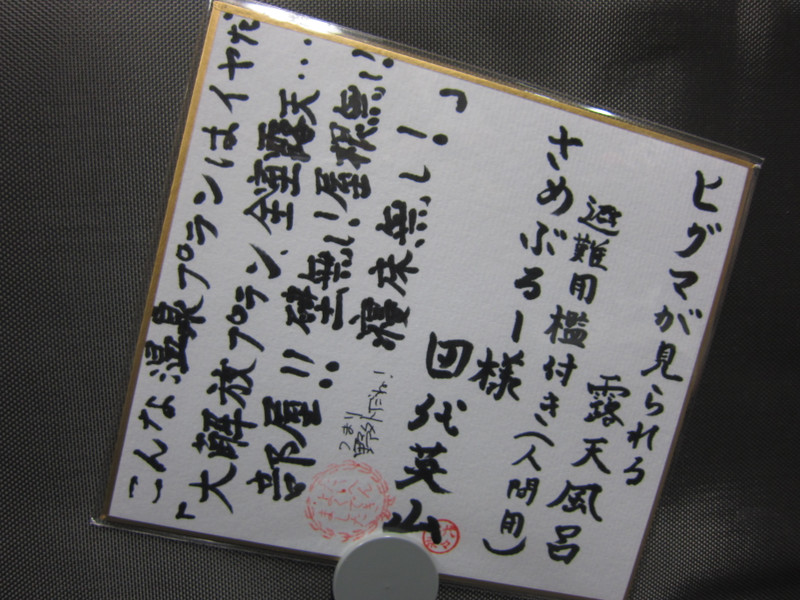 こんな温泉プランはイヤだ
「大解放プラン、全室露天…
部屋!!壁無し!屋根無し!!
寝床無し!」
つまり野外だね!
ヒグマが見られる
露天風呂
避難用檻付き(人間用)
さめぶるー様